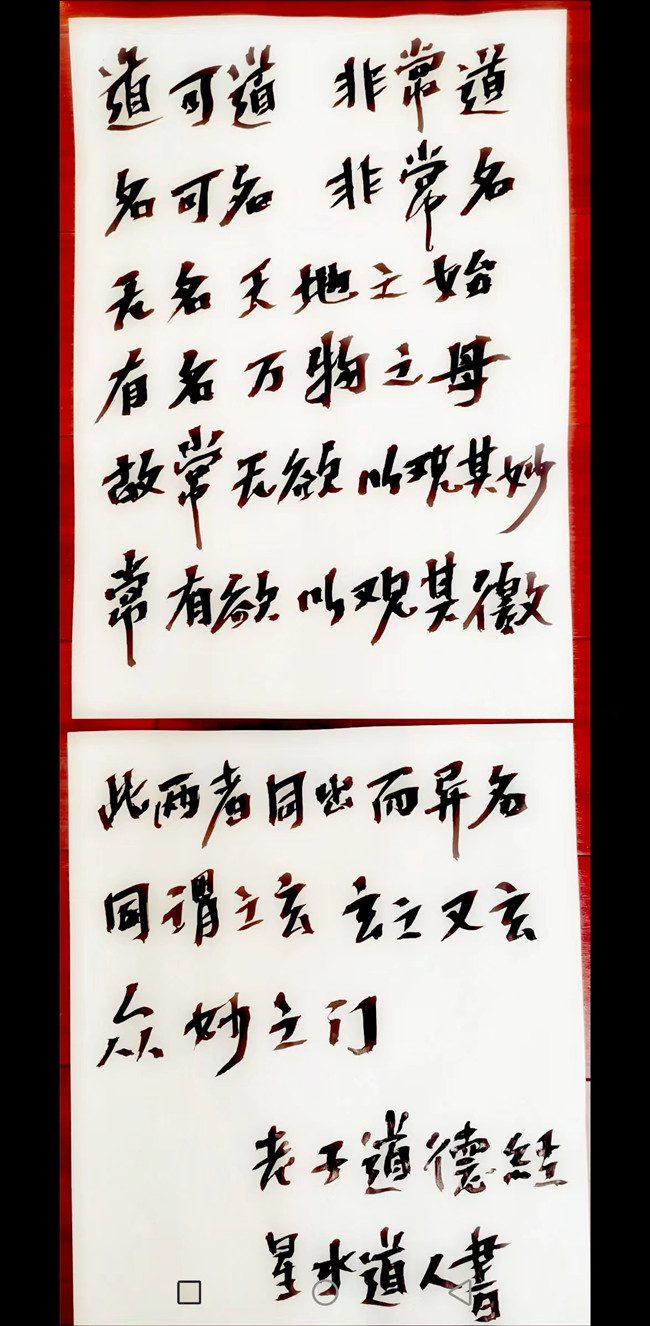 道可道 非常道
名可名 非常名
无名天地之始
有名万物之母
故常无欲以观其妙
常有欲以观其徼
此两者同出而异名
同谓之玄 玄之又玄
众妙之门
老子道德経
星水道人書